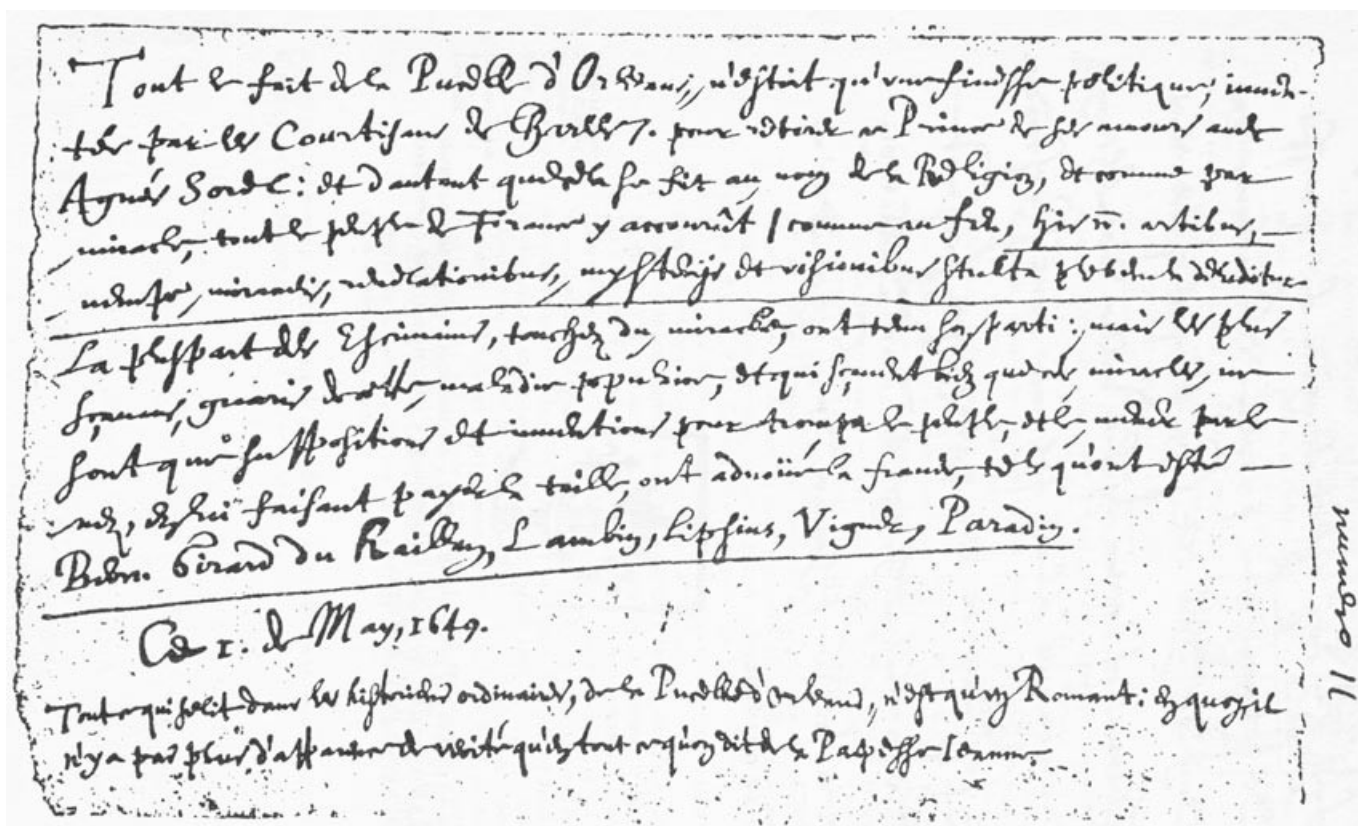 Tout le fait de la Pucelle d'Orleans, n'estoit qu'une finesse politique, inuen-
tée par les Courtisans de Charles 7. pour retirer ce Prince de ses amours auec
Agnes Sorel: et d'autant que cela se fit au nom de la Religion, et comme par
miracle, tout le peuple de France y accourût / comme au feu, his n. artibus,
nempe, miraculis, reuelationibus, mysterijs et visionibus stulta plebecula deluditur.
La pluspart des Escriuains, touchez du miracle, ont tenu son parti: mais les plus
sçauans, gueris de cette maladie populaire, et qui sçauent bien que ces miracles, ne
sont que suppositions et inuentions pour tromper le peuple, et le mener par le
nez, en luÿ faisant payer la taille, ont aduoüé la fraude, tels qu'ont esté
Bern. Girard du Haillan, Lambin, Lipsius, Vignier, Paradin.
Ce 1. de May, 1649.
Tout ce qui se lit dans les historiens ordinaires, de la Pucelle d'Orleans, n'est qu'un Romant: en quoy il
n'y a pas plus d'apparence de verité qu'en tout ce qu'on dit de la Papesse Jeanne.
numero 11